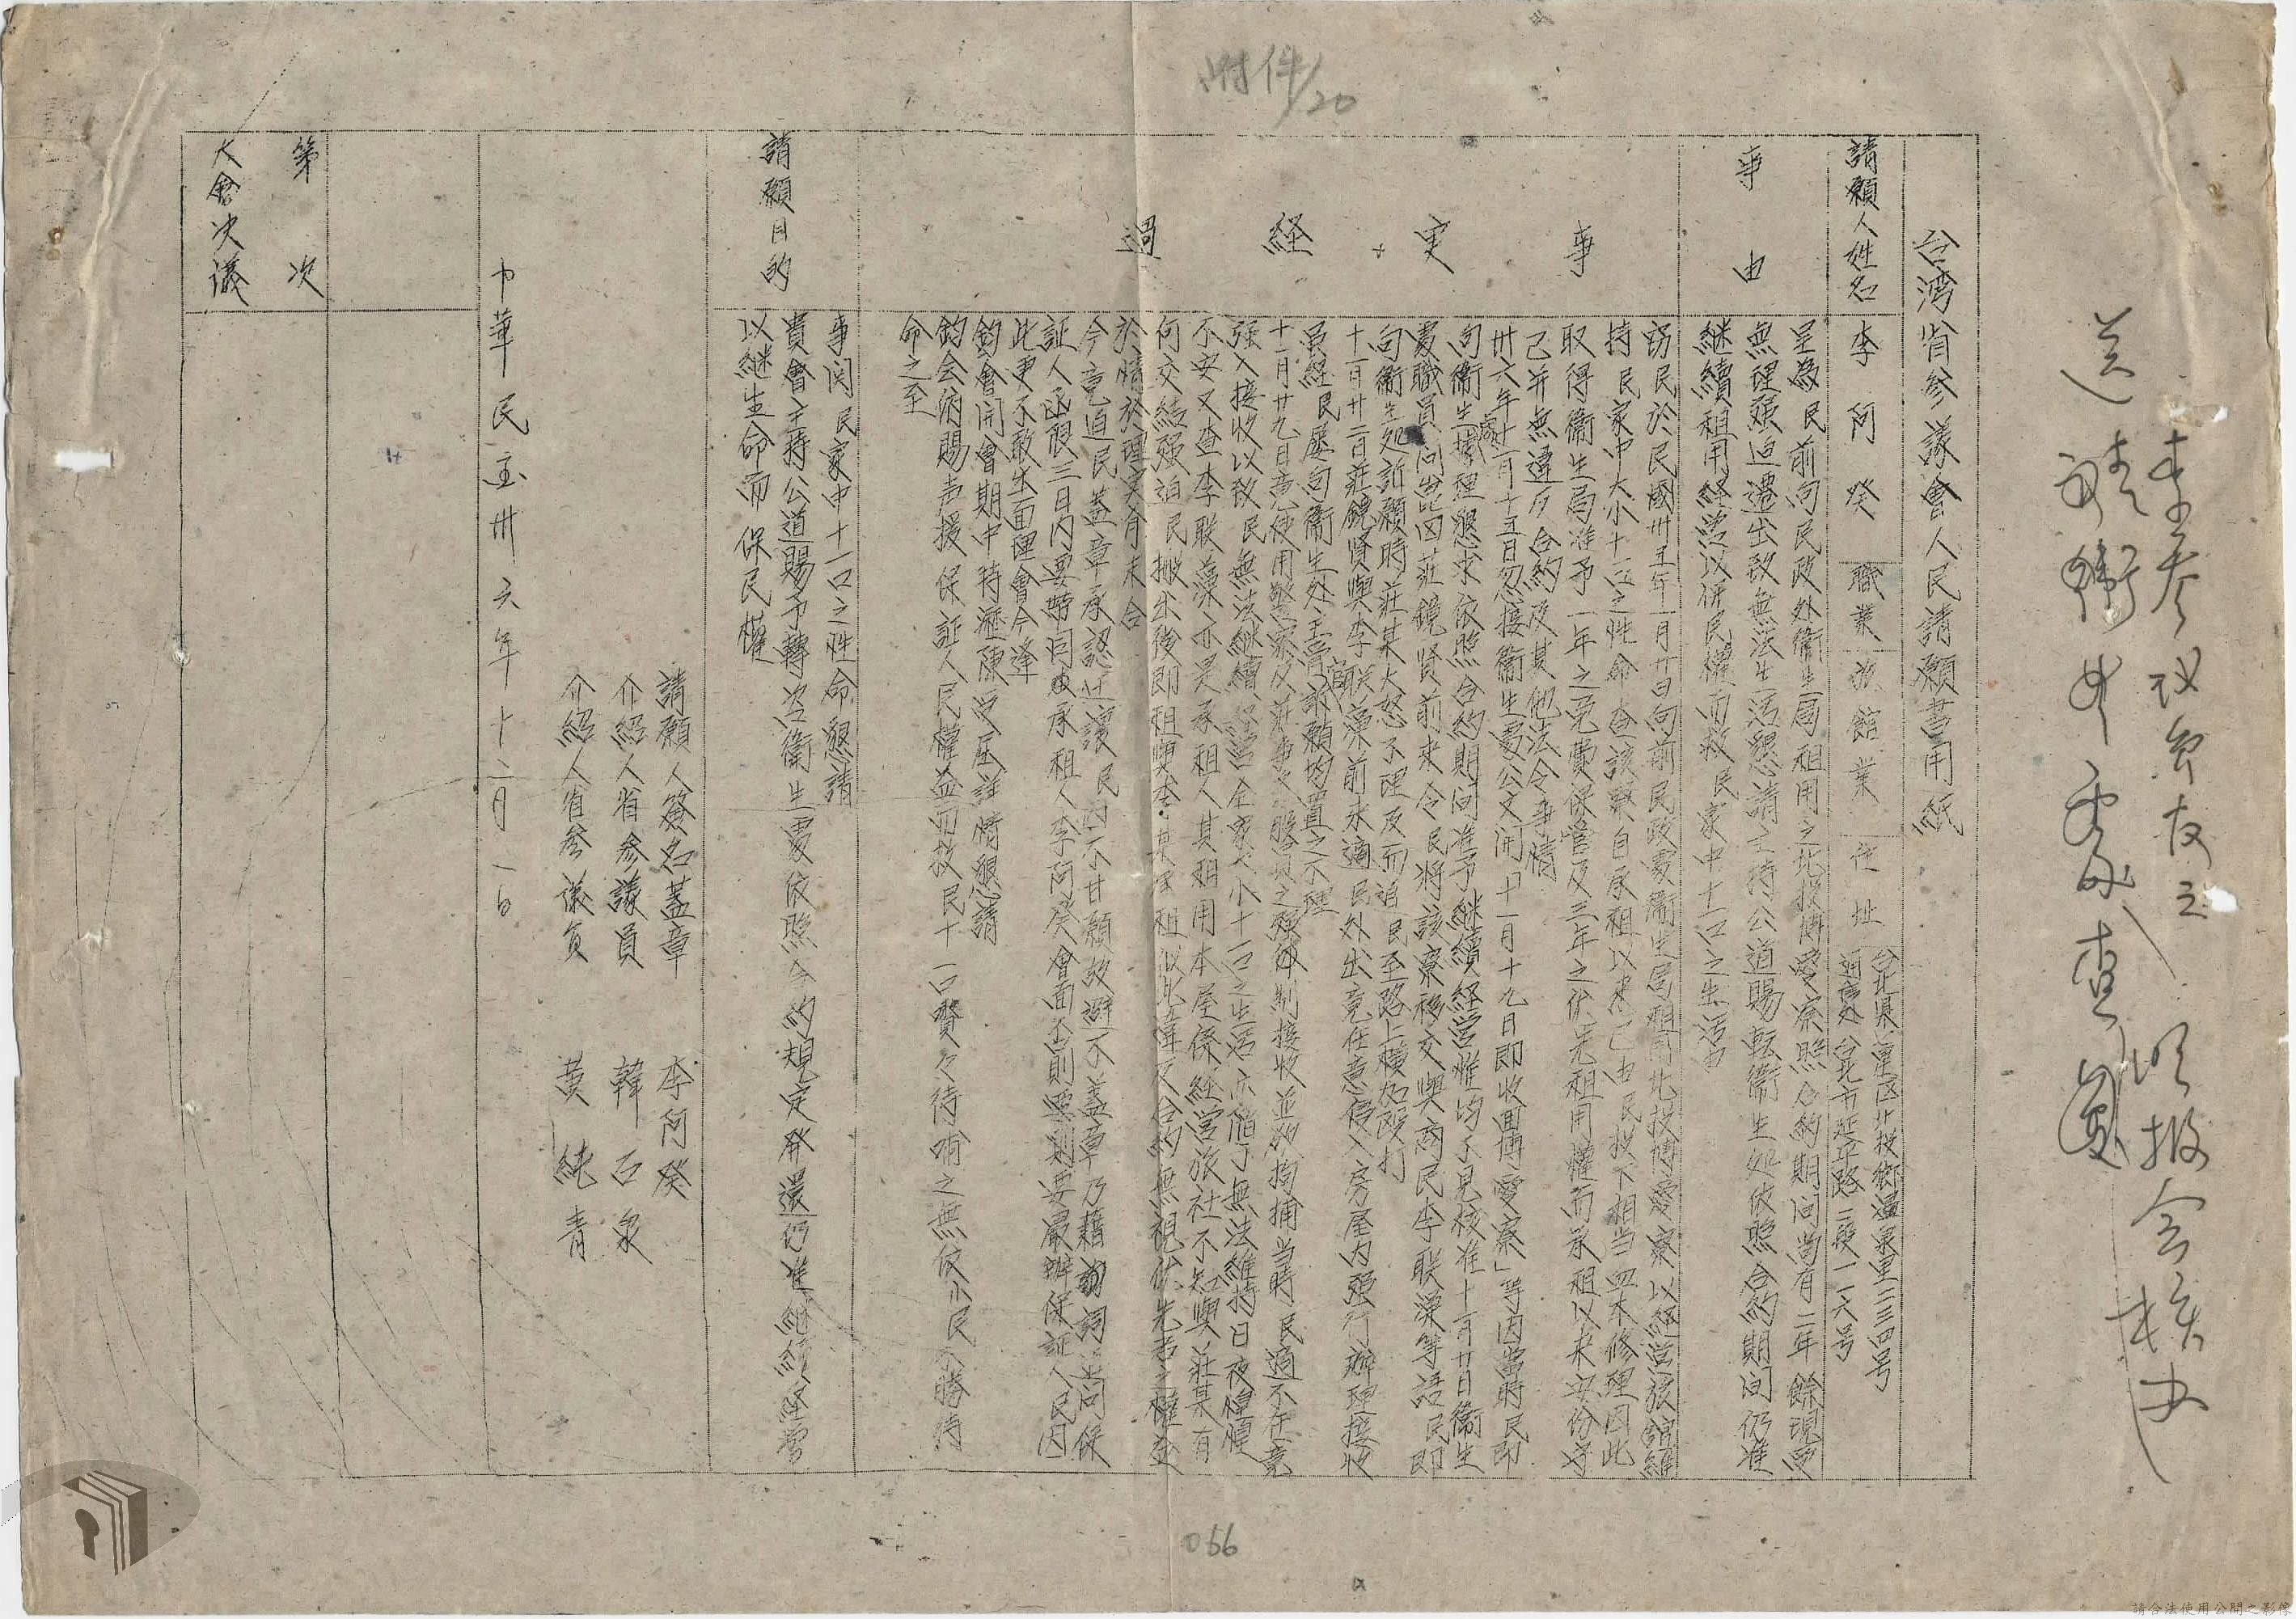 附件/20
台湾省参議會人民請願書用紙
請願人姓名 李阿癸 職業 旅館業 住址 台北県七星区北投鄉温泉里二三四号
通信处 台北市延平路二段一一六号
事由
呈為民前向民政处衛生局租用之北投博愛寮照合約期间尚有二年餘現受
無理强迫遷出致無法生活懇請主持公道賜転衛生処依照合約期间仍准
継續租用経営以併民權而救民家中十一口之生活由
事実 経過
窃民於民國卅五年一月廿日向前民政處衛生局租用北投博愛寮以経営旅館維
持民家中大小十一口之性命查該寮自承租以来已由民投下相当血本修理因此
取得衛生局准予一年之免費保管及三年之优先租用權而承租以来安份守
己并無違反合約及其他法令事情
卅六年十一月十五日忽接衛生處公文開「十一月十九日即收回博愛寮」等因當時民即
向衛生處據理懇求依照合約期间准予継續経営惟均不見核准十一月廿日衛生
處職員 莊鏡賢前来令民將該寮移交與商民李联藻等語民即
向衛生処訴願時莊某大怒不理反而追民至路上橫加毆打
十一月廿二日莊鏡賢與李联藻前来適民外出竟任意侵入房屋内强行辦理接收
虽経民屡向衛生处主管官訴願均置之不理
十一月廿九日竟使用警察及莊某 之强制接收並欲拘捕当時民適不在竟
强入接收以致民無法継續経営全家大小十一口之生活亦陷于無法維持日夜惶惶
不安又查李联藻亦是承租人其租用本屋係経営旅社不知與莊某有
何交結强迫民搬出後即租與李某承租似此違反合約無視优先者之權並
於情於理实有未合
今竟迫民蓋章承認迁讓民因不甘願故避不蓋章乃藉詞 向保
証人函限三日内要帶同 承租人李阿癸會面否則要 嚴辦保証人民因
此更不敢出面理會今逢
鈞會開會期中特瀝陳受屈詳情懇請
鈞会俯賜声援保証人民權益而救民十一口贅々待哺之無依小民不勝待
命之至
請願目的
事関民家中十一口之性命懇請
貴會主持公道賜予轉咨衛生處依照合約規定發還仍准継續経営
以継生命而保民權
請願人簽名蓋章 李阿癸
介紹人省参議員 韓石泉
介紹人省参議員 黄純青
中華民国卅六年十二月一日
第 次
大會決議
066
請合法使用公開之影像